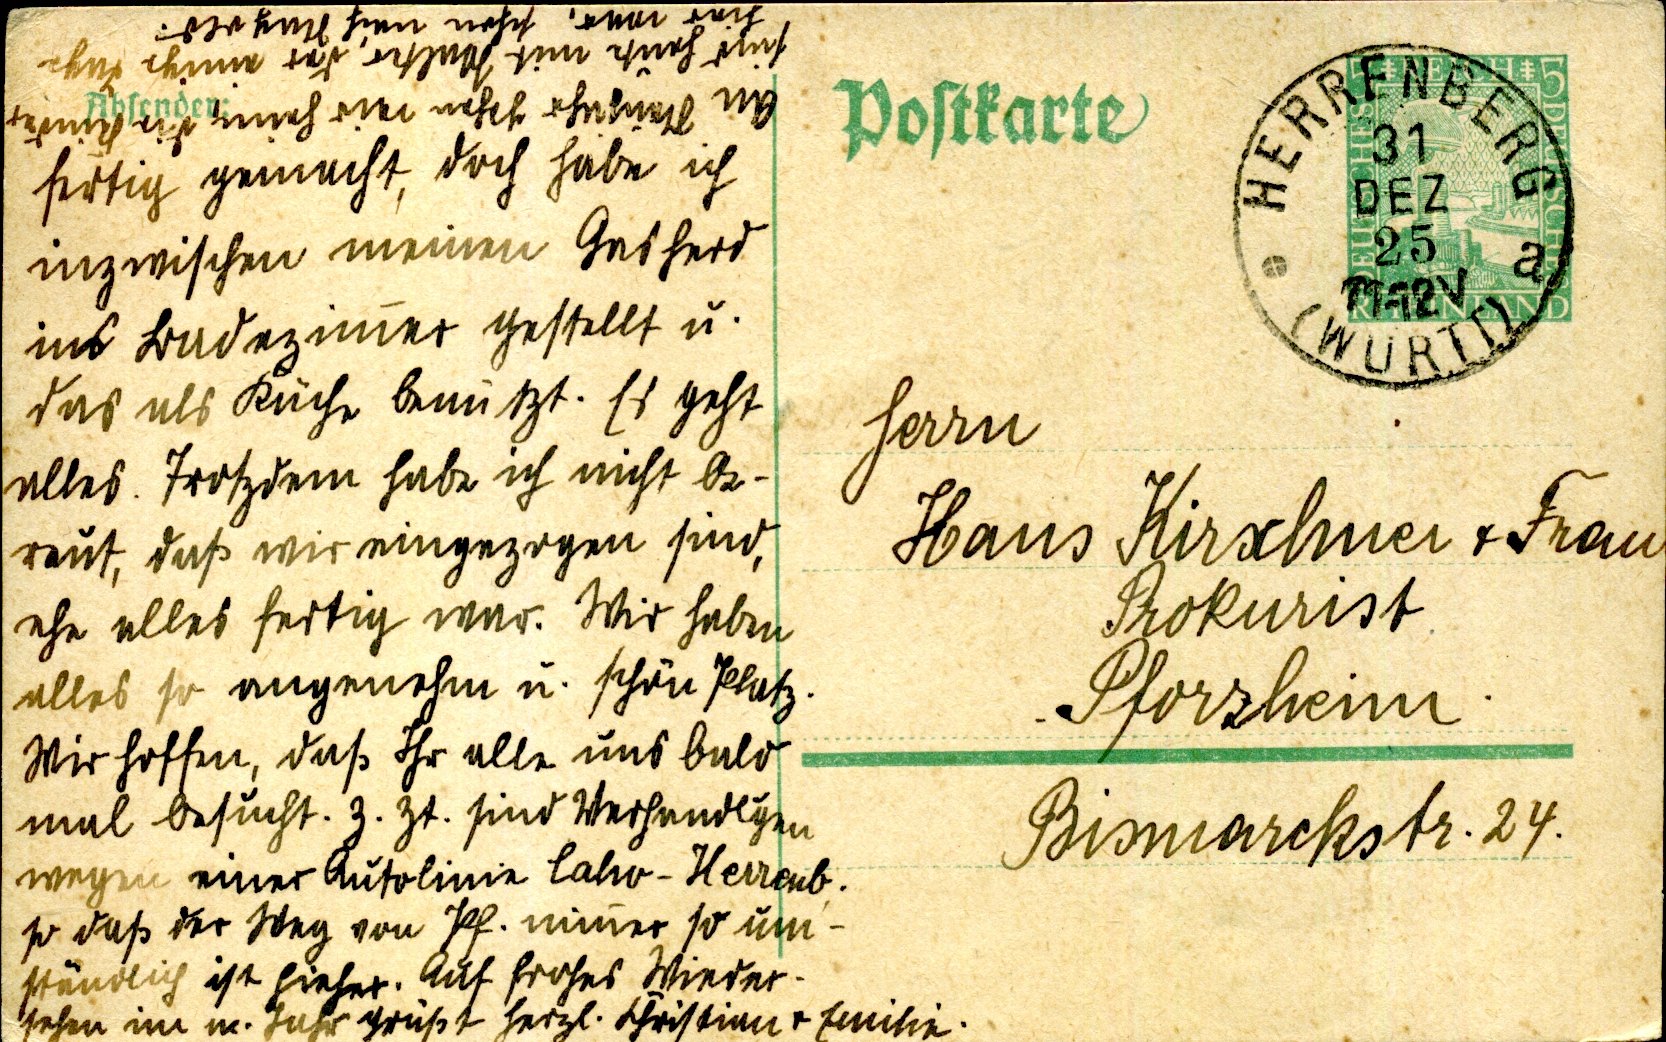 fertig gemacht, doch habe ich
inzwischen meinen Gasherd
ins Badezim̄er gestellt u.
das als Küche benützt. Es geht
alles. Trotzdem habe ich nicht be-
reut, daß wir eingezogen sind,
ehe alles fertig war. Wir haben
alles so angenehm u. schön Platz.
Wir hoffen, daß Ihr alle uns bald
mal besucht. Z. Zt. sind Verhandlgen
wegen einer Autolinie Calw-Herrenb.
so daß der Weg von Pf. nim̄er so um-
ständlich ist hieher. Auf frohes Wieder-
sehen im n. Jahr grüßt herzl. Christian + Emilie.
sind heute mit Walter, der einige Tage
hier war, schon nach
Absender:
Postkarte
DEUTSCHES REICH
5 5
DEUTSCHES
RHEINLAND
HERRENBERG
31
DEZ
25
11-12V
a
(WÜRTT)
Herrn
Hans Kirschner + Frau
Prokurist
Pforzheim
Bismarckstr. 24.